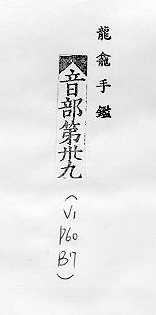 龍龕手鑑
音部第卅九
(V1
P60
B7)